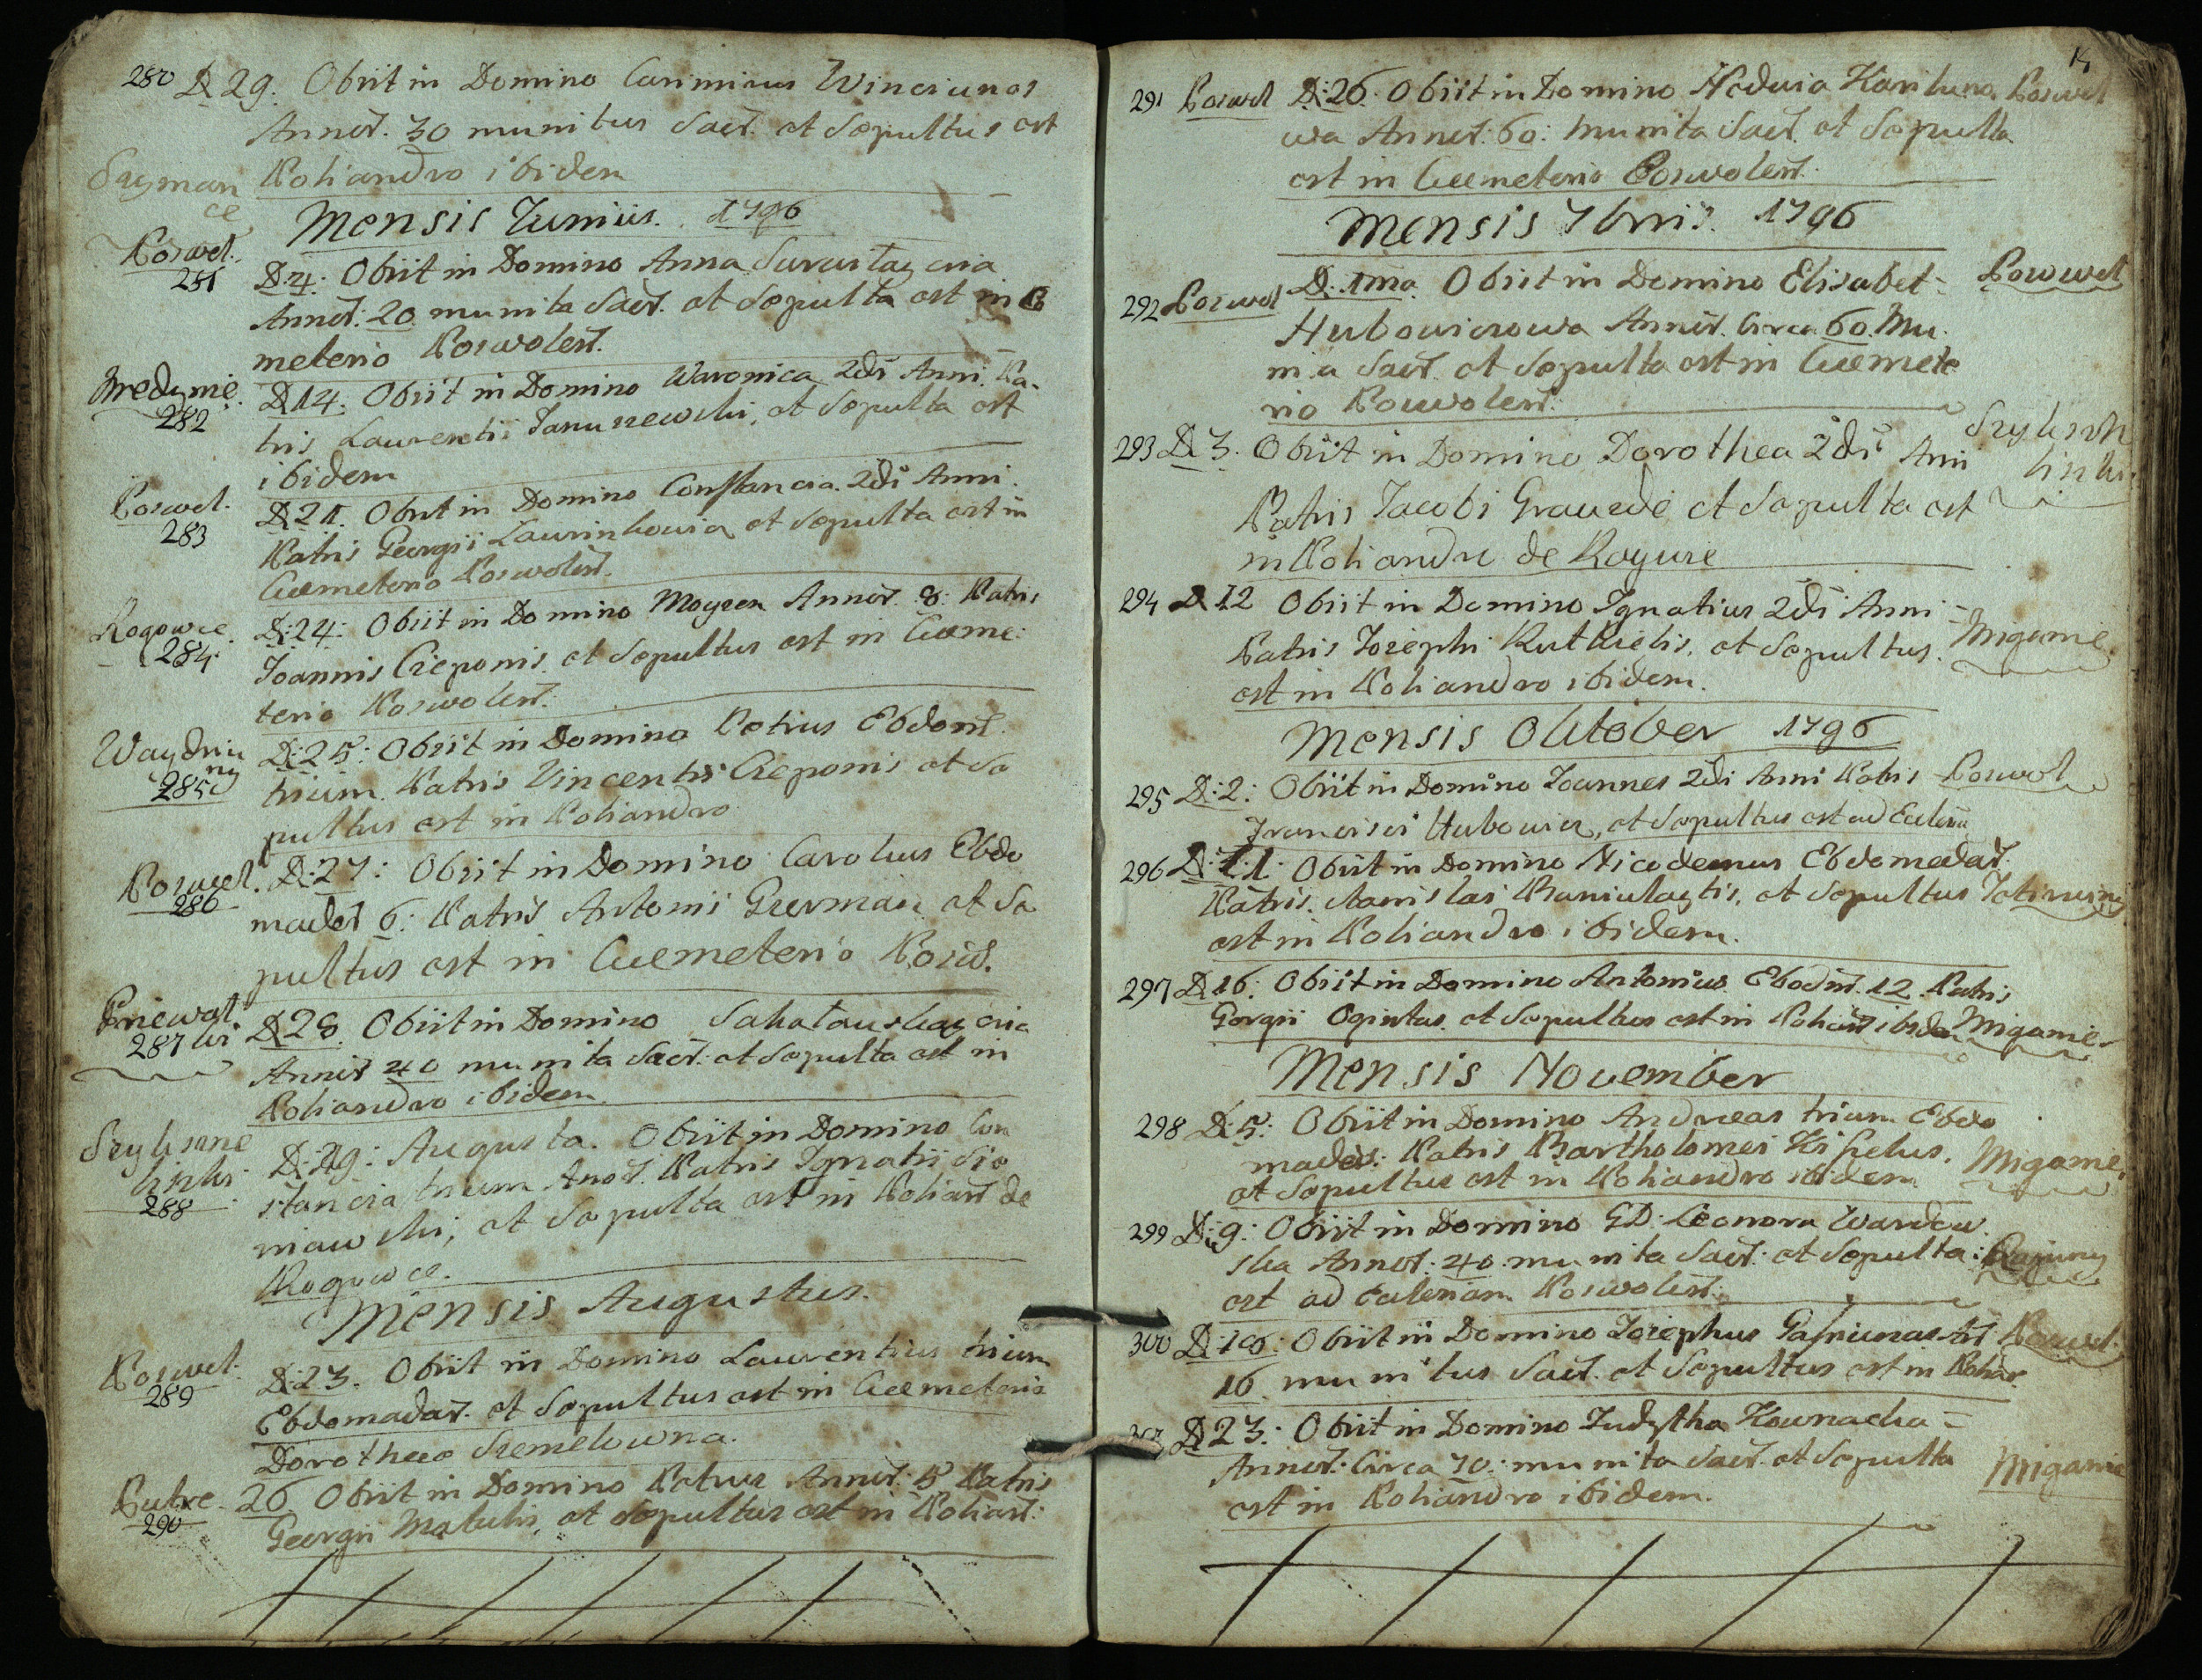 280 D 29. Obiit in Domino Casimirus Winciunas
Annor. 30 munitus Sacr. et Sepultus est
Szyman
ce
Poliandro ibidem
Mensis Iunius. 1796
Poswol.
281 D. 4. Obiit in Domino Anna
Annor. 20 munita Sacr. et Sepulta est in
meterio Poswolen.
282 D 14. Obiit in Domino Weronica 2di Anni. Pa-
tris Laurentii Januszewski, et Sepulta est
ibidem
Poswol.
283 D 21. Obiit in Domino Constancia 2di Anni.
Patris Georgii Laurinkowicz et Sepulta est in
Cæmeterio Poswolen.
Rogowce.
284. D: 24: Obiit in Domino Moyzes Annor. 8: Patris
Joannis Cieponis et Sepultus est in Cæme:
terio Poswolen.
Waydziu
ny
285 D: 25: Obiit in Domino Petrus Ebdom.
trium Patris Vincentis Cieponis et Se
pultus est in Poliandro
Poswol.
286 D: 27: Obiit in Domino Carolus Ebdo
madar 6: Patris Antonii German et Se
pultus est in Cæmeterio Posw.
287 D 28. Obiit in Domino
Annor 40 munita Sacr: et Sepulta est in
Poliandro ibidem.
288 D: 29: Augusta. Obiit in Domino Con
stancia trium Anor. Patris Ignatii Sie
niawski, et Sepulta est in Polian de
Rogowce.
Mensis Augustus.
Poswol.
289 D: 23. Obiit in Domino Laurentius trium
Ebdomadar. et Sepultus est in Cæmeterio
Dorotheæ
290 26 Obiit in Domino Petrus Annor: 5 Patris
Georgii Matulis, et Sepultus est in Polian:
291 Poswol D: 26. Obiit in Domino Poswol
wa Annor: 60: munita Sacr. et Sepulta
est in Cæmeterio Poswolen.
Mensis 7bris. 1796
292 Poswol D. 1ma Obiit in Domino Elisabet- Poswol
Hubowiczowa Annor. Circa 60. Mu-
ni a Sacr. et Sepulta est in Cæmete
rio Poswolen.
293 D. 3. Obiit in Domino Dorothea 2di Ann
Patris Jacobi et Sepulta est
in Poliandru de
294 D 12 Obiit in Domino Ignatius 2di Anni-
Patris Iozephi Rutkielis. et Sepultus. Migonie.
est in Poliandro ibidem.
Mensis Oktober 1796
295 D: 2: Obiit in Domino Ioannes 2di Anni Patris Poswol
Francisci Hubowicz, et Sepultus est ad Eclesia
296 D: 11. Obiit in Domino Nicodemus Ebdomedar.
Patris. Stanislai et Sepultus
est in Poliandro ibidem.
297 D 16. Obiit in Domino Antonius Ebodm. 12. Patris
Gorgii Ogintas et Sepultus est in Polian ibidem Migonie.
Mensis November
298 D: 5: Obiit in Domino Andreas trium Ebdo
mader: Patris Bartholomei
et Sepultus est in Poliandro ibidem Migonie.
299 D: 9: Obiit in Domino GD: Leonora Wardow
ska Annor: 40 munita Sacr: et Sepulta:
est ad Eclesiam Poswolen:
300 D: 10: Obiit in Domino Iozephus An Poswol.
16 munitus Sacr. et Sepultus est in Polian.
D 23: Obiit in Domino Judytha Kownacka-
Annor: Circa 70: munita Sacr. et Sepulta Migonie
est in Poliandro ibidem.